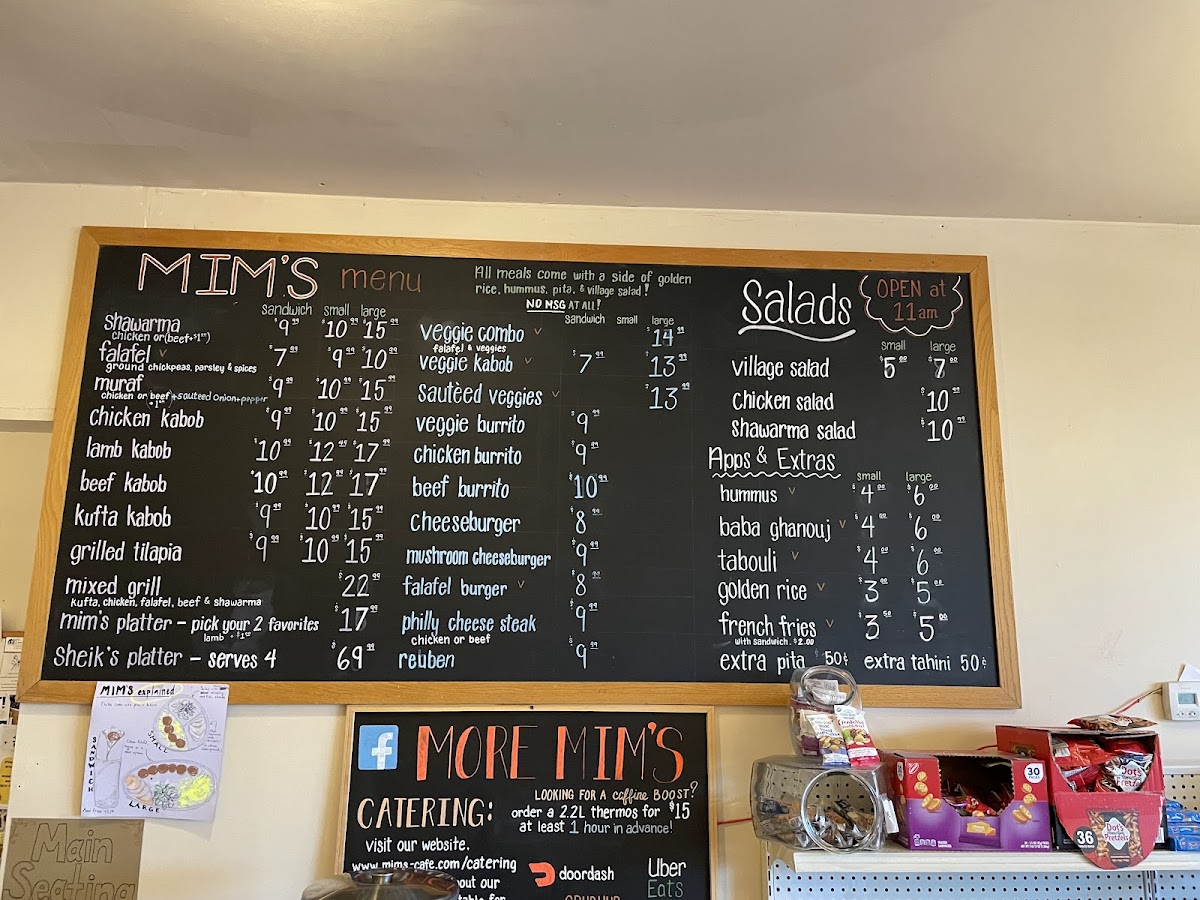 MIM'S menu
All meals come with a side of golden
rice, hummus, pita, & village salad!
NO MSG AT ALL!
sandwich small large
shawarma $9.99 $10.99 $15.99
chicken or (beef+$1.00)
falafel ✓ $7.99 $9.99 $10.99
ground chickpeas, parsley & spices
muraf $9.99 $10.99 $15.99
chicken or beef + sauteed onion+pepper
chicken kabob $9.99 $10.99 $15.99
lamb kabob $10.99 $12.99 $17.99
beef kabob $10.99 $12.99 $17.99
kufta kabob $9.99 $10.99 $15.99
grilled tilapia $9.99 $10.99 $15.99
mixed grill $22.99
kufta, chicken, falafel, beef & shawarma
mim's platter - pick your 2 favorites $17.99
lamb + $1.00
Sheik's platter - serves 4 $69.99
sandwich small large
veggie combo ✓ $14.99
falafel & veggies
veggie kabob ✓ $7.99 $13.99
sautèed veggies ✓ $13.99
veggie burrito $9.99
chicken burrito $9.99
beef burrito $10.99
cheeseburger $8.99
mushroom cheeseburger $9.99
falafel burger ✓ $8.99
philly cheese steak $9.99
chicken or beef
reuben $9.99
Salads
OPEN at
11am
small large
village salad $5.00 $7.00
chicken salad $10.99
shawarma salad $10.99
Apps & Extras
small large
hummus ✓ $4.00 $6.00
baba ghanouj ✓ $4.00 $6.00
tabouli ✓ $4.00 $6.00
golden rice ✓ $3.00 $5.00
french fries ✓ $3.50 $5.00
with sandwich $2.00
extra pita $50¢ extra tahini 50¢
MIM'S explained
SANDWICH
SMALL
LARGE
Main
Seating
f
MORE MIM'S
CATERING:
visit our website.
www.mims-cafe.com/catering
LOOKING FOR A caffine BOOST?
order a 2.2L thermos for $15
at least 1 hour in advance!
doordash
Uber
Eats
30
36
Dot's
Pretzels
Dot's